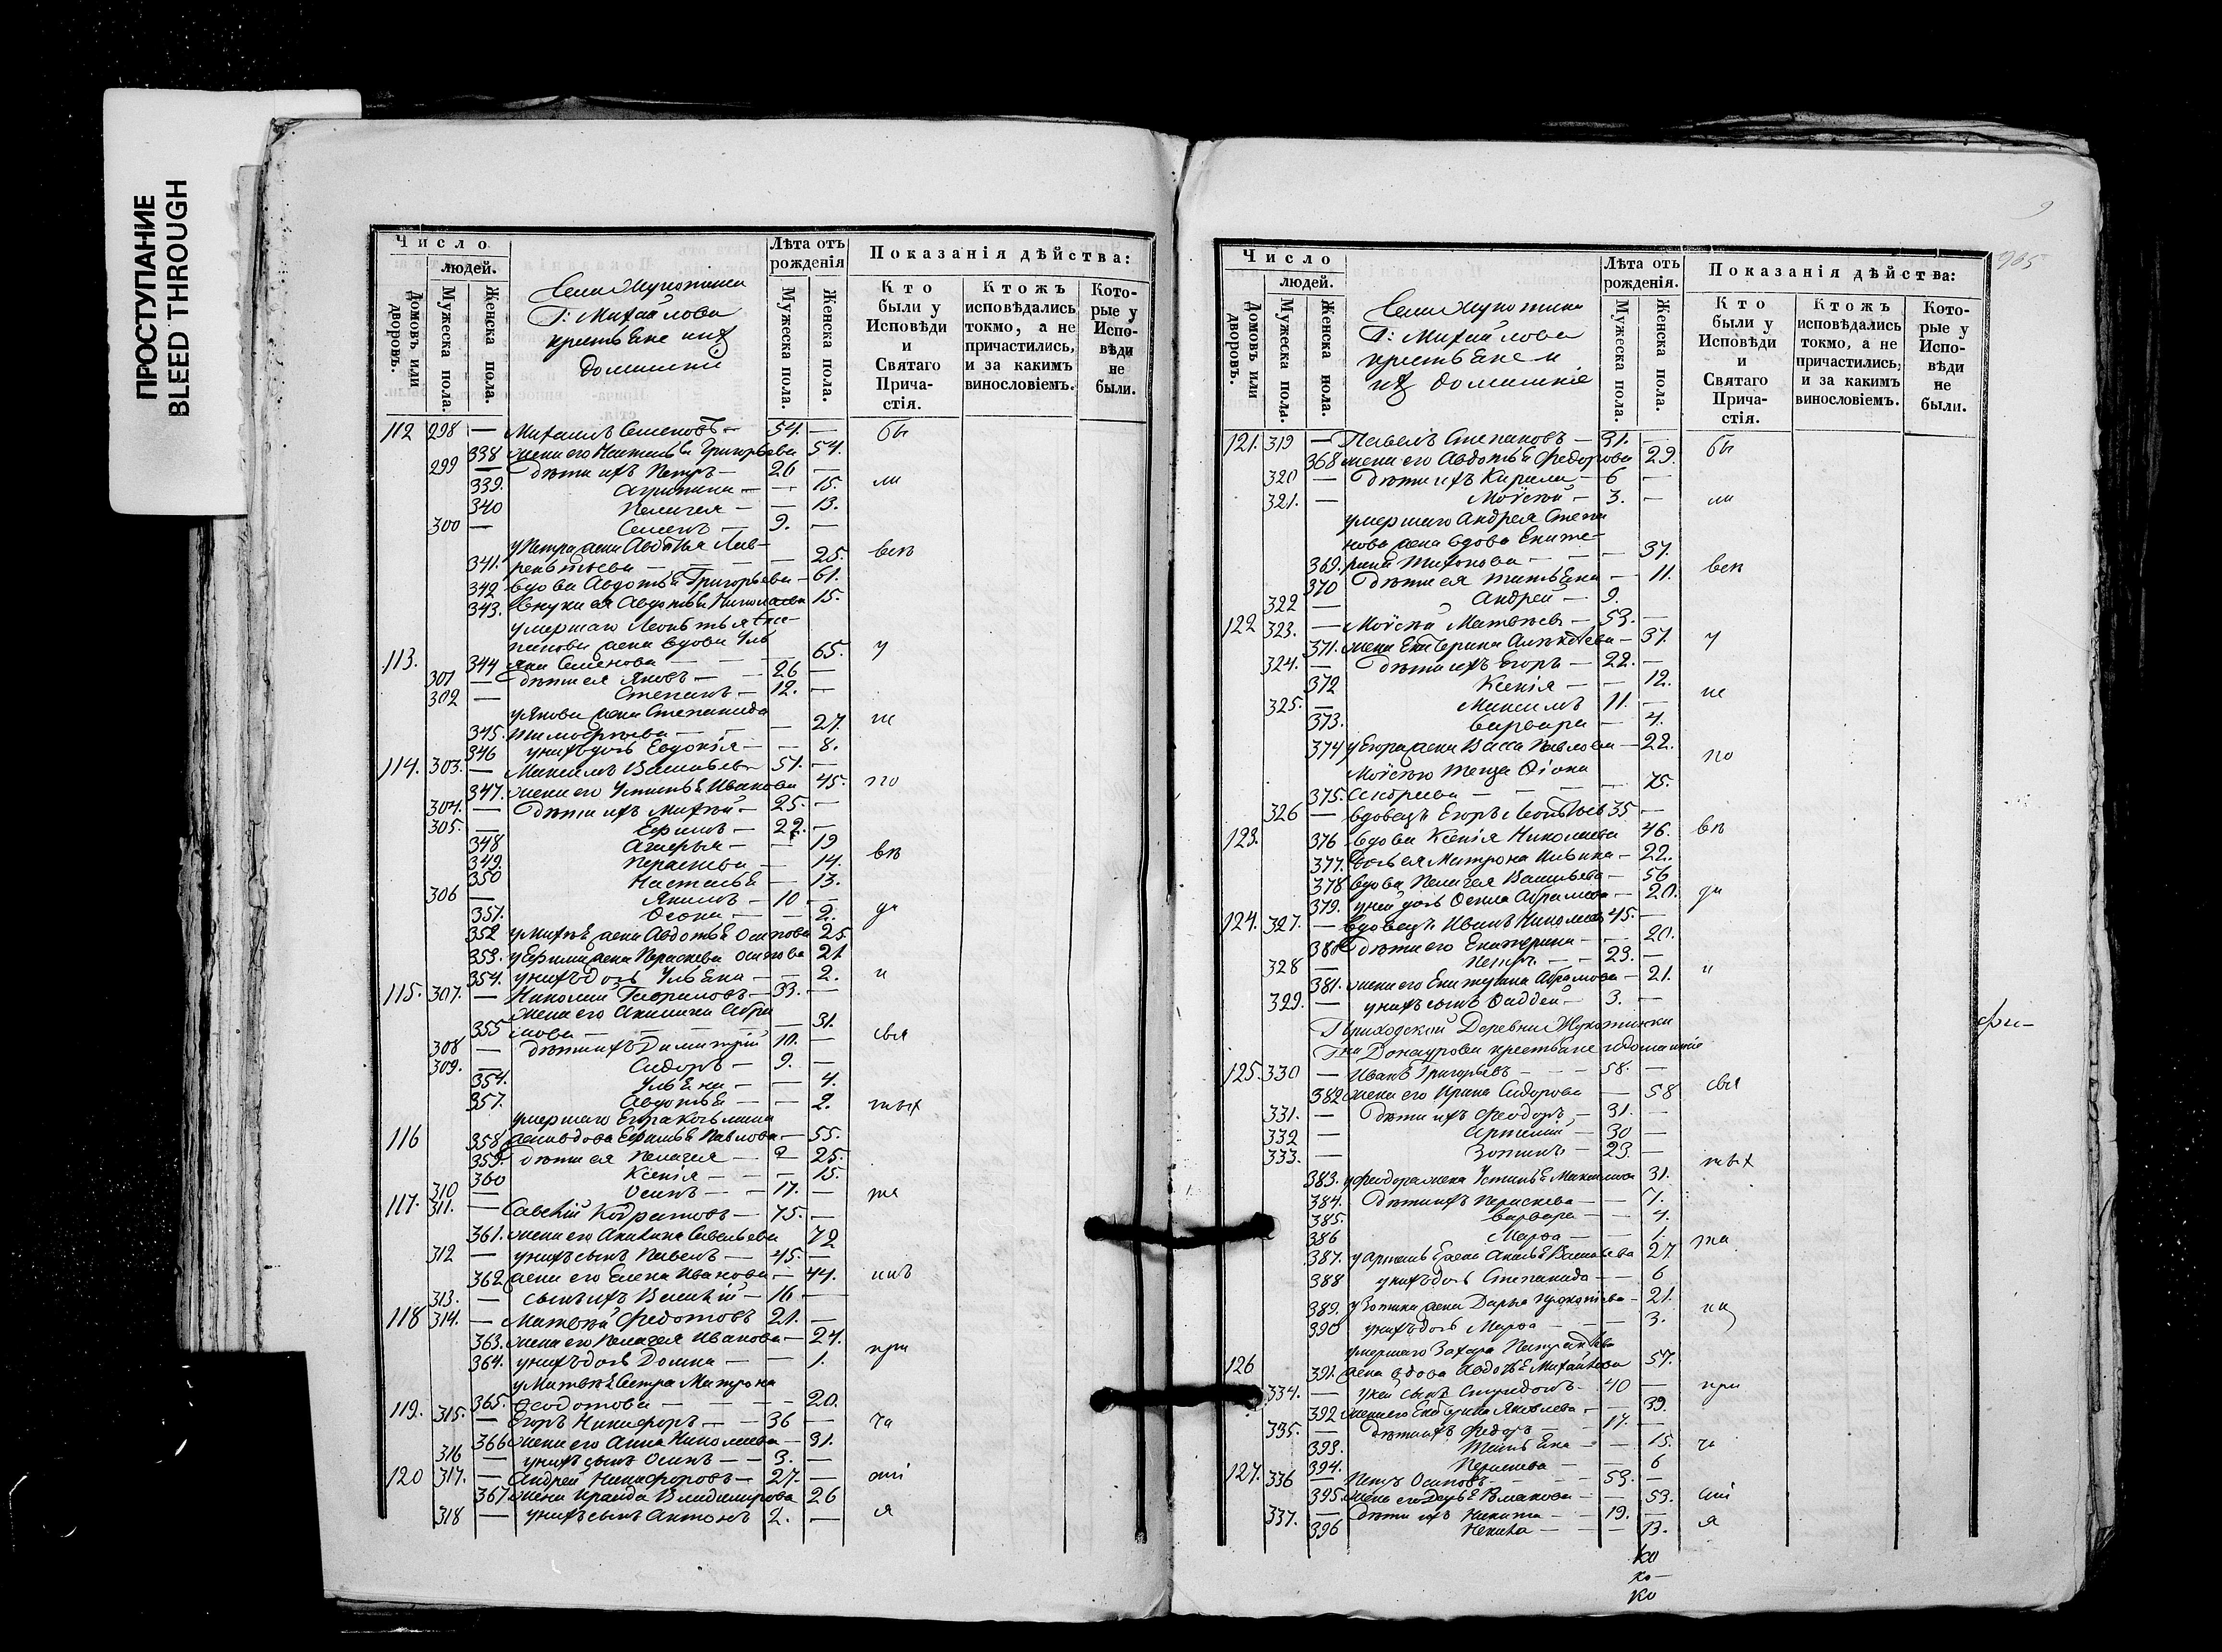 ПРОСТУПАНИЕ
BLEED THROUGH
Число
людей.
Домовъ или дворовъ.
Мужеска пола.
Женска пола.
Г: Михайлова
крестьяне ихъ
домашніи
Лѣта отъ рожденія
Мужеска пола.
Женска пола.
Показанія дѣйства:
Кто были у Исповѣди и Святаго Прича-стія.
Ктожъ исповѣдались токмо, а не причастились, и за какимъ винословіемъ.
Кото-рые у Испо-вѣди не были.
112 298 — Михаилъ Семеновъ — 54. — бы
338 жена его Наталья Григорьева 54.
299 — дѣти ихъ Петръ — 26 —
339. Агрипина — — 15. ли
340 Пелагея — — 13.
300 — Семенъ — 9. —
у Петра жена Авдотья Лав-
341. рентьева — — — 25. всѣ
342 вдова Авдотья Григорьева — 61.
343. внука ея Авдотья Николаева 15.
умершаго Леонтья Сте-
панова жена вдова Уль
113. 344 яна Семенова — — 65. у
301 — дѣти ея Яковъ — 26 —
302 — Степанъ — 12. —
у Якова жена Степанида
345. Тимоѳеева — — — 27. не
346 у нихъ дочь Евдокія — — 8.
114. 303. — Максимъ Васильевъ 51. —
347. жена его Устинья Иванова 45. по
304. — дѣти ихъ Михей — 25. —
305. — Ефимъ — 22. —
348 — 19
349. Параскева — 14. вѣ
350 Настасья — 13.
306 — Якимъ — 10 —
351. — — 2. да
352 у Михѣя жена Авдотья Осипова 25
353. у Ефима жена Параскева Осипова 21
354. у нихъ дочь Ульяна — — 2. и
115. 307. — Николай Гавриловъ — 33. —
жена его Акилина Абра
355 мова — — — — 31.
308 — дѣти ихъ Димитрій 10. — свя
309. — Сидоръ — 9. —
354. Ульяна — — 4.
357. Авдотья — — 2. тыхъ
умершаго Егора Козьмина
116 358 жена вдова Ефимья Павлова — 55.
359. дѣти ея Пелагея — 25.
360 Ксенія — — 15.
310 — Осипъ — — 17. — та
117. 311. — Савелій Кодратовъ — 75. —
361. жена его Акилина Савельева 72
312 — у нихъ сынъ Павелъ — 45. —
362 жена его Елена Иванова — 44. инъ
313. — сынъ ихъ Василій — 16 —
118 314. — Матвѣй Федотовъ 21. —
363. жена его Пелагея Иванова — 24.
364. у нихъ дочь Домна — — 1. при
у Матвѣя сестра Матрона
365. Ѳеодотова — — — 20.
119. 315. — Егоръ Никифоръ — — 36 — ча
366 жена его Анна Николаева — 31.
316 — у нихъ сынъ Осипъ — — 3. —
120 317. — Андрей Никифоровъ — 27. — сті
367 жена Ираида Владимирова 26
318 — у нихъ сынъ Антонъ 2. — я
905
Число
людей.
Домовъ или дворовъ.
Мужеска пола.
Женска пола.
Г: Михайлова
крестьяне и
ихъ домашніе
Лѣта отъ рожденія.
Мужеска пола.
Женска пола.
Показанія дѣйства:
Кто были у Исповѣди и Святаго Прича-стія.
Ктожъ исповѣдались токмо, а не причастились, и за какимъ винословіемъ.
Кото-рые у Испо-вѣди не были.
121. 319 — Павелъ Степановъ — 31. — бы
368 жена его Авдотья Федорова 29.
320 — Дѣти ихъ Кирила — 6 —
321. — Моѵсей — 3. — ли
умершаго Андрея Степа
нова жена вдова Екате-
369. рина Тихонова — — 37. всѣ
370 Дѣти ея Татьяна — 11.
322 — Андрей — 9.
122 323. — Моѵсей Матвѣевъ — 53. —
371. жена Екатерина Алексѣева — 37. у
324. — Дѣти ихъ Егоръ — 22. —
372 Ксенія — — 12. не
325. — Максимъ 11. —
373. Варвара — 4.
374 у Егора жена Васса Павлова — 22. по
Моѵсею теща
375. — — — 75.
326 — вдовецъ Егоръ Леонтьевъ 35 —
123. 376 вдова Ксенія Николаева 46. вѣ
377. дочь ея Матрона — 22.
378 вдова Пелагея Васильева — 56
379. у ней дочь Абрамова — 20. да
124. 327. — вдовецъ Иванъ Николаевъ 45. —
380 Дѣти его Екатерина — — 20.
328 — Петръ — — 23. —
381. жена его Абрамова — 21. и
329. — у нихъ сынъ Фаддей — 3. —
Приходской Деревни Жукотинки
Донаурова крестьяне и домашніе
125. 330 — Иванъ Григорьевъ — — 58. —
382 жена его Ирина Сидорова — 58 свя
331. — Дѣти ихъ Феодоръ — 31. —
332 — Артемій — 30 —
333. — Зотикъ — 23. — тыхъ
383. у Феодора жена Устинья Максимова 31.
384. Дѣти ихъ Параскева — — 7.
385. Варвара — — 4.
386 Марфа — — 1. та
387. Васильева 27
388 у нихъ дочь Степанида — — 6
389. у Зотика жена Дарья Прокопіева — 21.
390 у нихъ дочь Марфа — — 3.
умершаго Захара
126 391. жена вдова Авдотья Михайлова 57.
334. — у ней сынъ Спиридонъ — 40 — при
392 жена его Екатерина Яковлева — 39.
335. — дѣти ихъ Федоръ — 17. —
393. Татьяна — — 15. ча
394. Параскева — — 6
127. 336 — Петръ Осиповъ — — 53. —
395. жена его Дарья — — 53. сті
337. — Дѣти ихъ Никита — — 19. —
396 — — 13. я